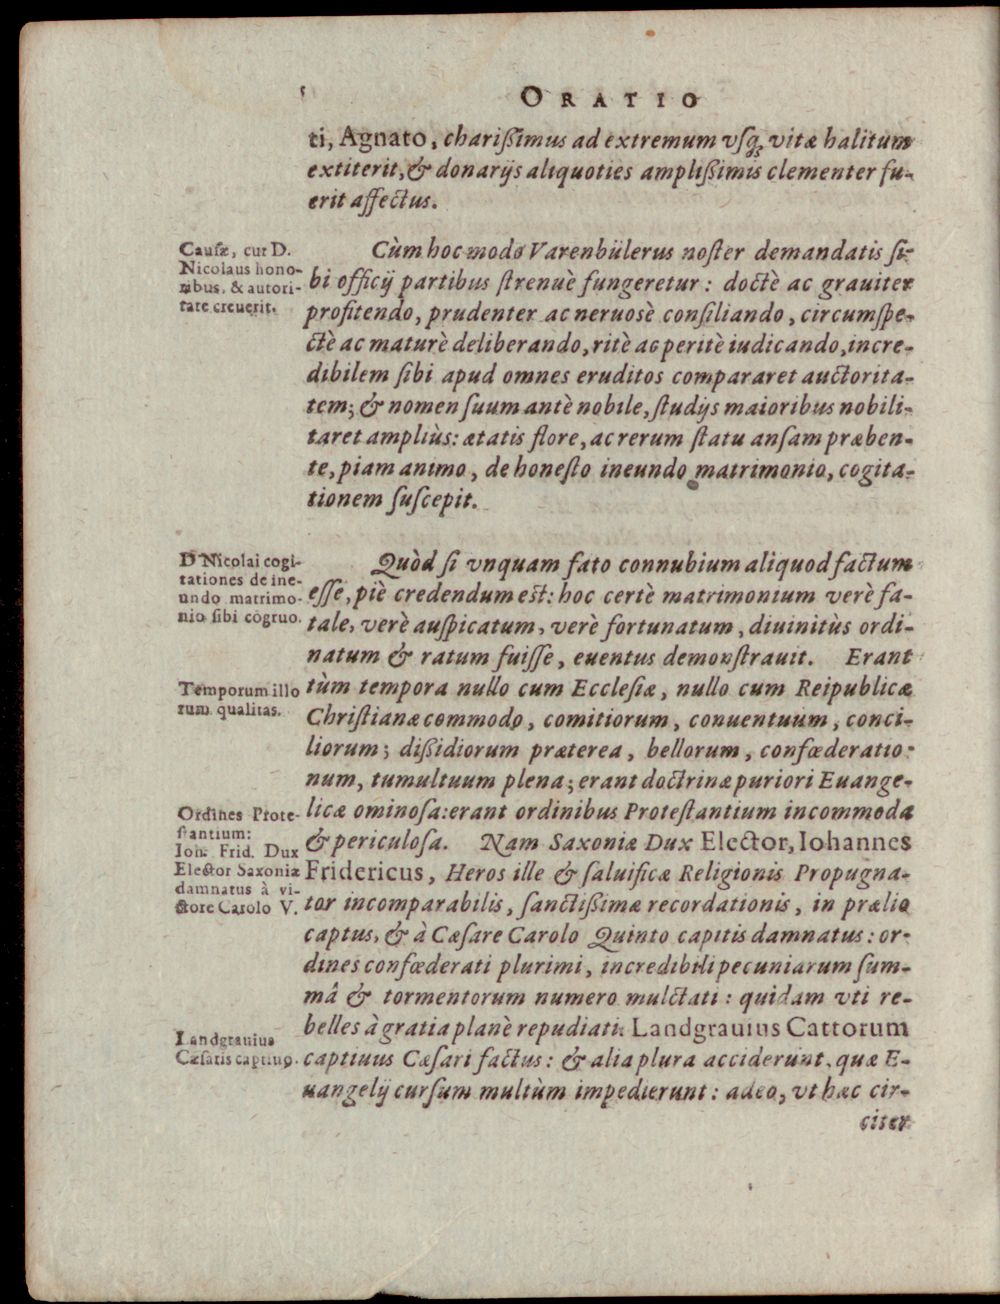 ORATIO
ti, Agnato, charißimus ad extremum vſq; vitæ halitum
extiterit, & donarijs aliquoties amplißimis clementer fu-
erit affectus.
Cauſæ, cur D.
Nicolaus hono-
ribus, & autori-
tate creuerit.
Cùm hoc modo Varenbülerus noſter demandatis ſi-
bi officij partibus ſtrenuè fungeretur: doctè ac grauiter
profitendo, prudenter ac neruosè conſiliando, circumſpe-
ctè ac maturè deliberando, ritè ac peritè iudicando, incre-
dibilem ſibi apud omnes eruditos compararet auctorita-
tem; & nomen ſuum antè nobile, ſtudijs maioribus nobili-
taret ampliùs: ætatis flore, ac rerum ſtatu anſam præben-
te, piam animo, de honeſto ineundo matrimonio, cogita-
tionem ſuſcepit.
D Nicolai cogi-
tationes de ine-
undo matrimo-
nio ſibi cōgruo.
Quòd ſi vnquam fato connubium aliquod factum
eſſe, piè credendum eſt: hoc certè matrimonium verè fa-
tale, verè auſpicatum, verè fortunatum, diuinitùs ordi-
natum & ratum fuiſſe, euentus demonſtrauit. Erant
Temporum illo
rum qualitas.
tùm tempora nullo cum Eccleſiæ, nullo cum Reipublicæ
Chriſtianæ commodo, comitiorum, conuentuum, conci-
liorum; dißidiorum præterea, bellorum, confœderatio-
num, tumultuum plena; erant doctrinæ puriori Euange-
Ordines Prote-
ſtantium:
Ioh. Frid. Dux
Elector Saxoniæ
damnatus à vi-
ctore Carolo V.
licæ ominoſa: erant ordinibus Proteſtantium incommoda
& periculoſa. Nam Saxoniæ Dux Elector, Iohannes
Fridericus, Heros ille & ſaluificæ Religionis Propugna-
tor incomparabilis, ſanctißimæ recordationis, in prælio
captus, & à Cæſare Carolo Quinto capitis damnatus: or-
dines confœderati plurimi, incredibili pecuniarum ſum-
mâ & tormentorum numero mulctati: quidam vti re-
belles à gratia planè repudiati. Landgrauius Cattorum
Landgrauius
Cæſaris captiuꝰ.
captiuus Cæſari factus: & alia plura acciderunt, quæ E-
uangelij curſum multùm impedierunt: adeo, vt hæc cir-
citer